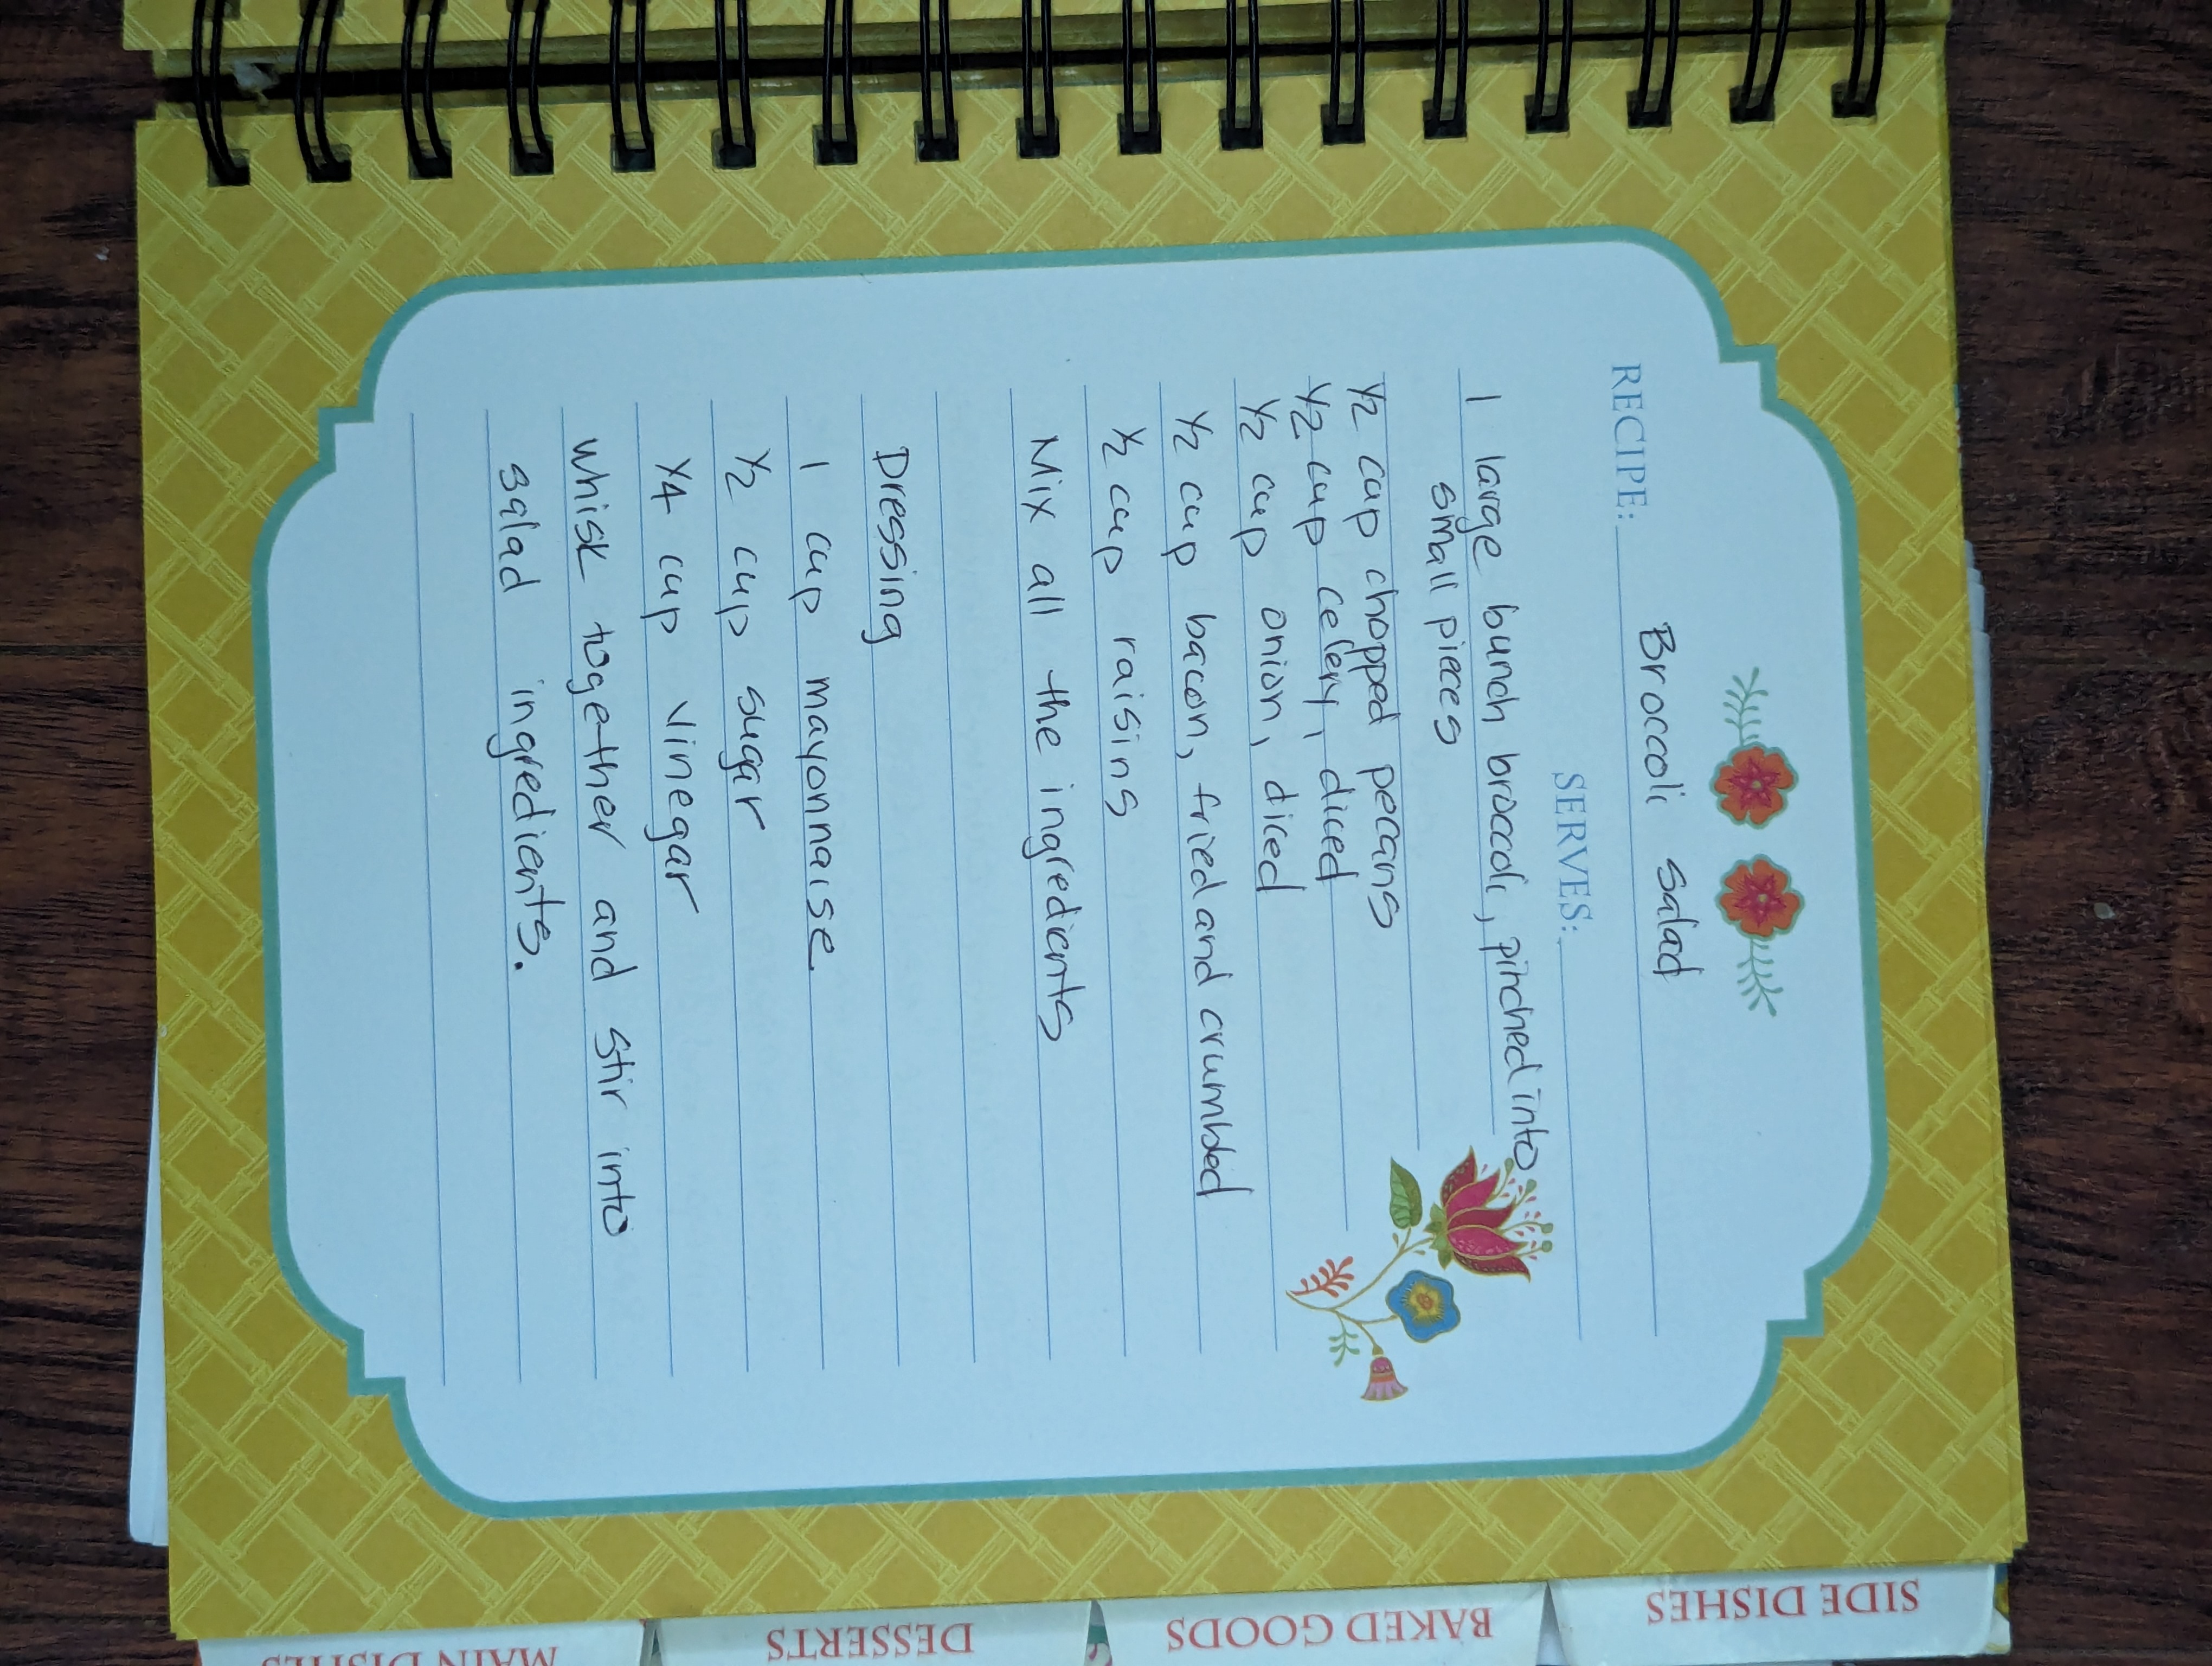 RECIPE: Broccoli salad
SERVES:
1 large bunch broccoli, pinched into
small pieces
1/2 cup chopped pecans
1/2 cup celery, diced
1/2 cup onion, diced
1/2 cup bacon, fried and crumbled
1/2 cup raisins
Mix all the ingredients
Dressing
1 cup mayonnaise
1/2 cup sugar
1/4 cup vinegar
whisk together and stir into
salad ingredients.
SIDE DISHES
BAKED GOODS
DESSERTS
MAIN DISHES